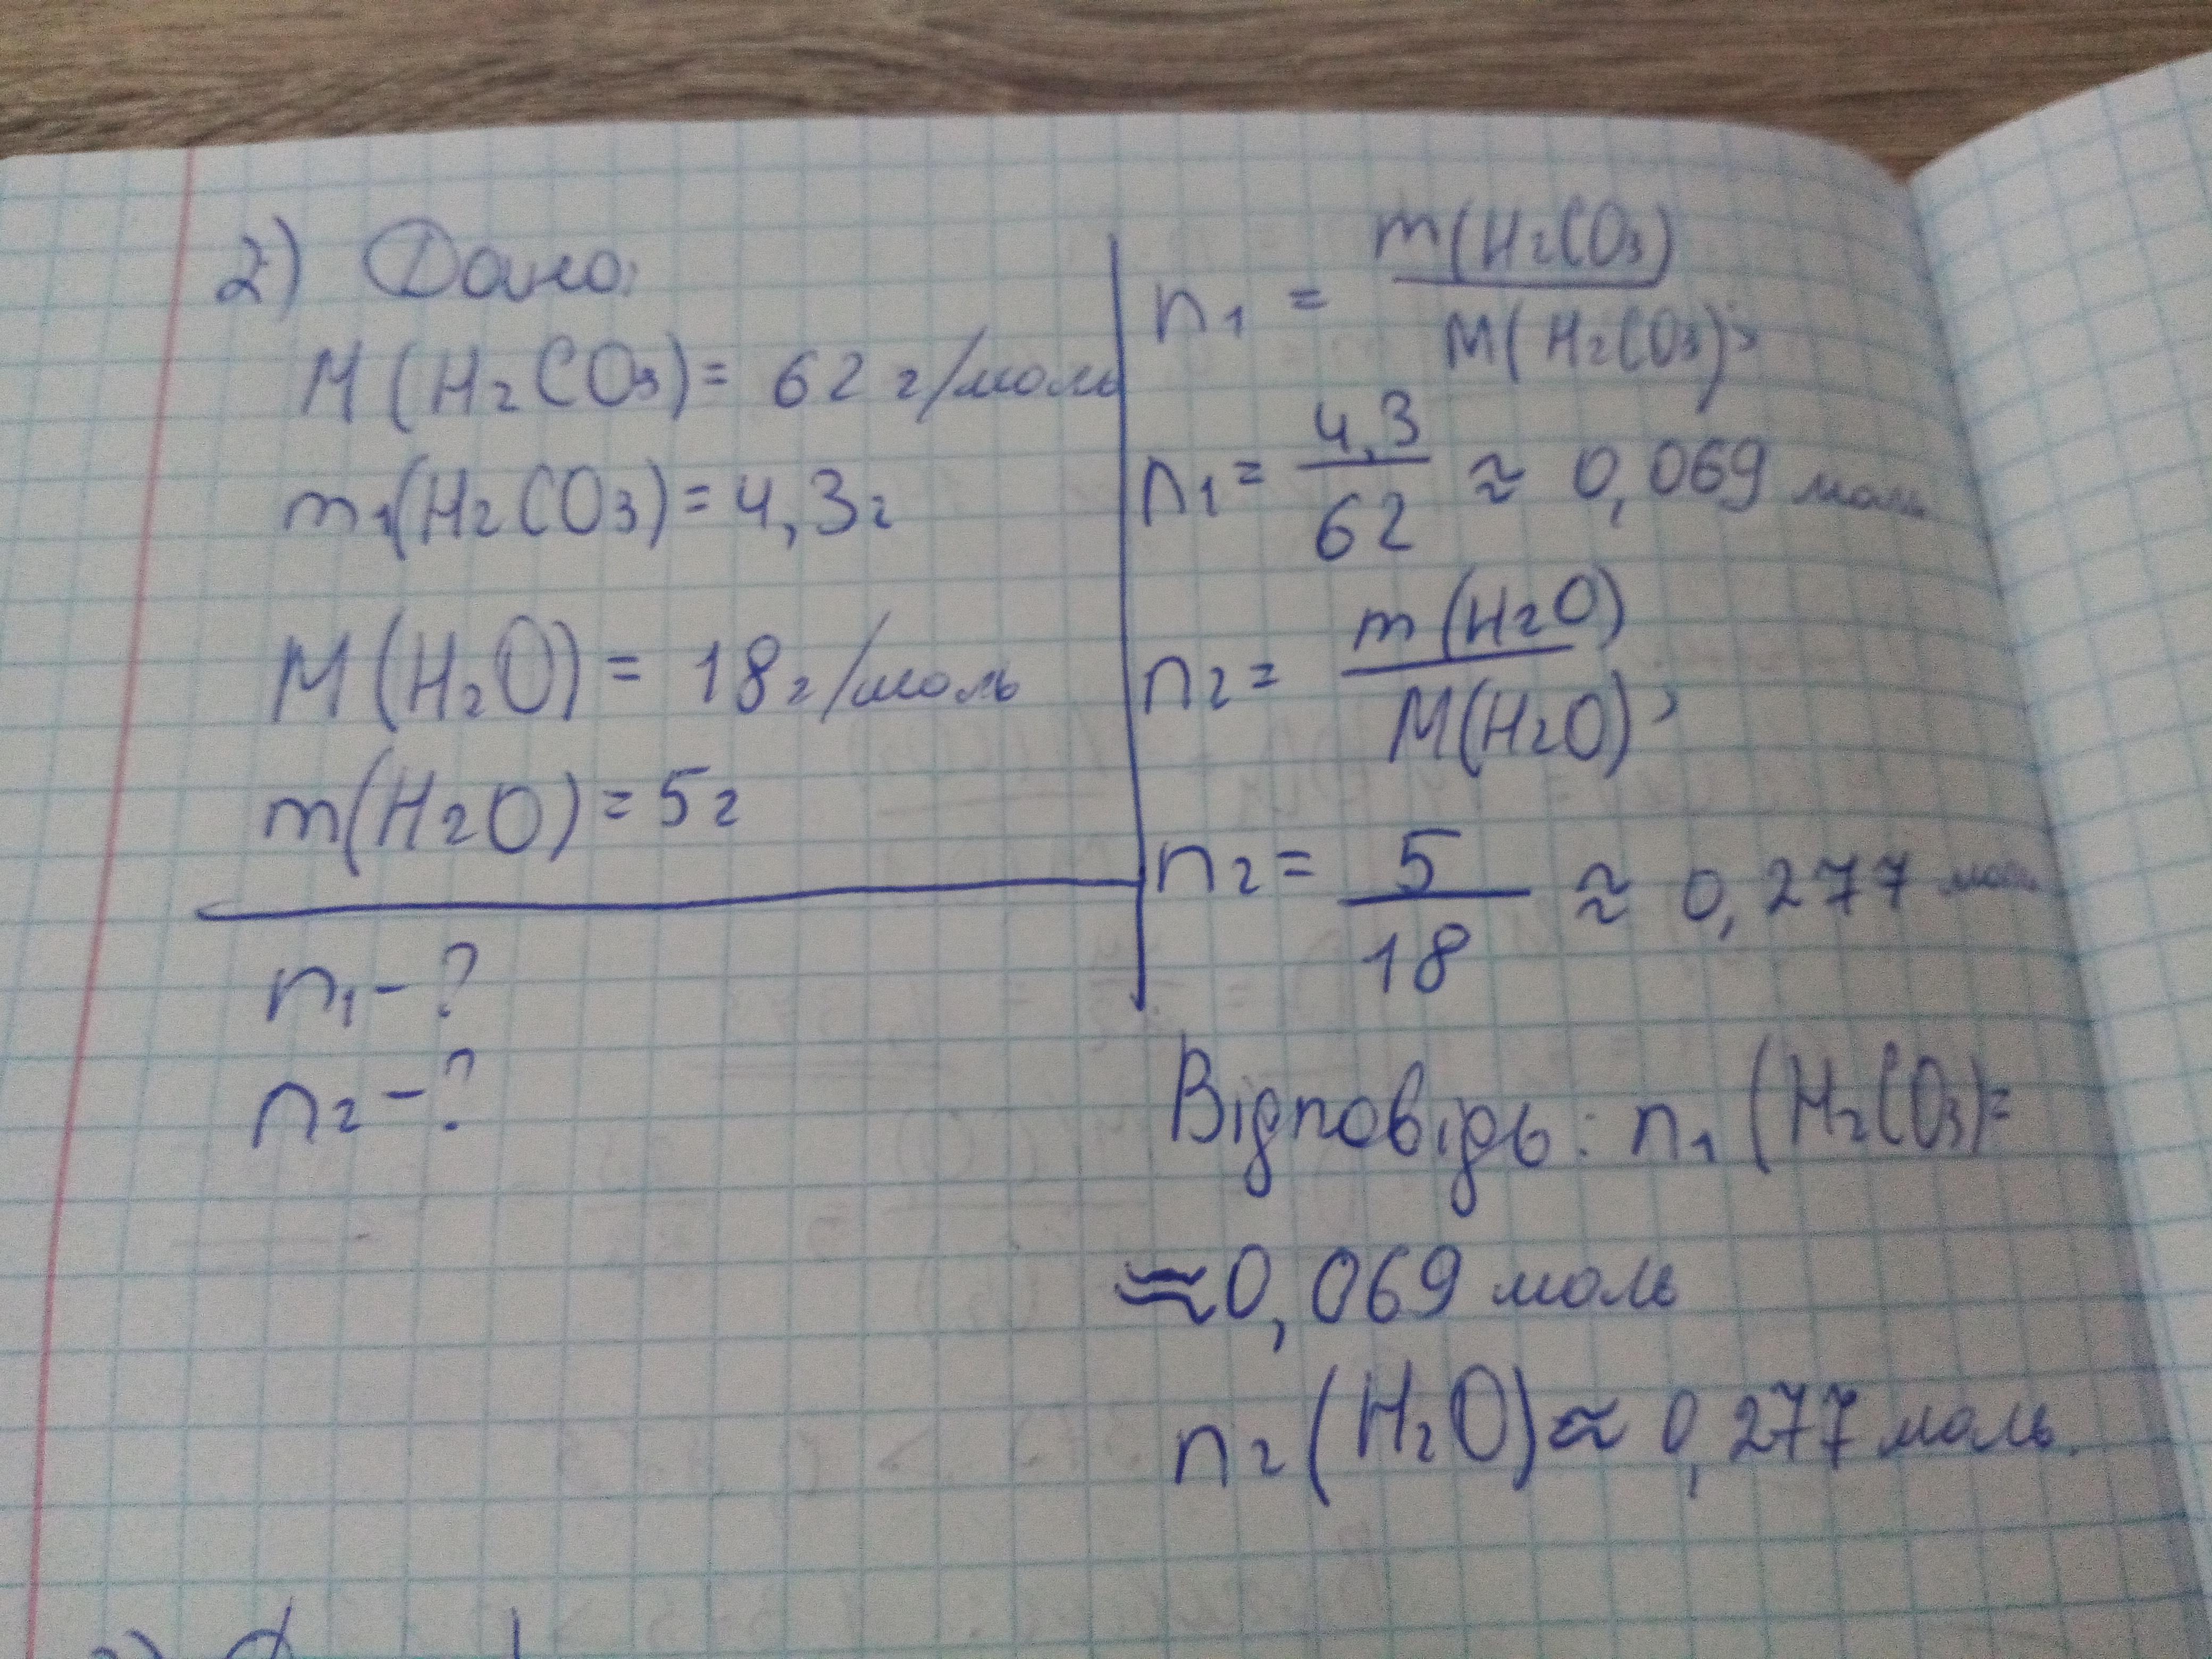 2) Дано:
M(H₂CO₃) = 62 г/моль
m₁(H₂CO₃) = 4,3г
M(H₂O) = 18г/моль
m(H₂O) = 5г
n₁ - ?
n₂ - ?
n₁ = m(H₂CO₃) / M(H₂CO₃);
n₁ = 4,3 / 62 ≈ 0,069 моль
n₂ = m(H₂O) / M(H₂O);
n₂ = 5 / 18 ≈ 0,277 моль
Відповідь: n₁ (H₂CO₃) =
≈ 0,069 моль
n₂ (H₂O) ≈ 0,277 моль.